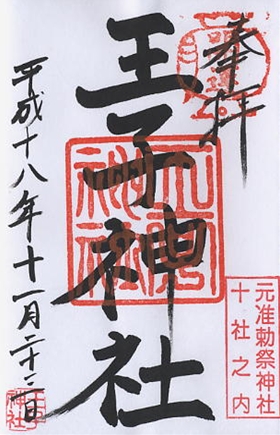 奉拝
王子神社
元准勅祭神社
十社之内
平成十八年十一月二十三日